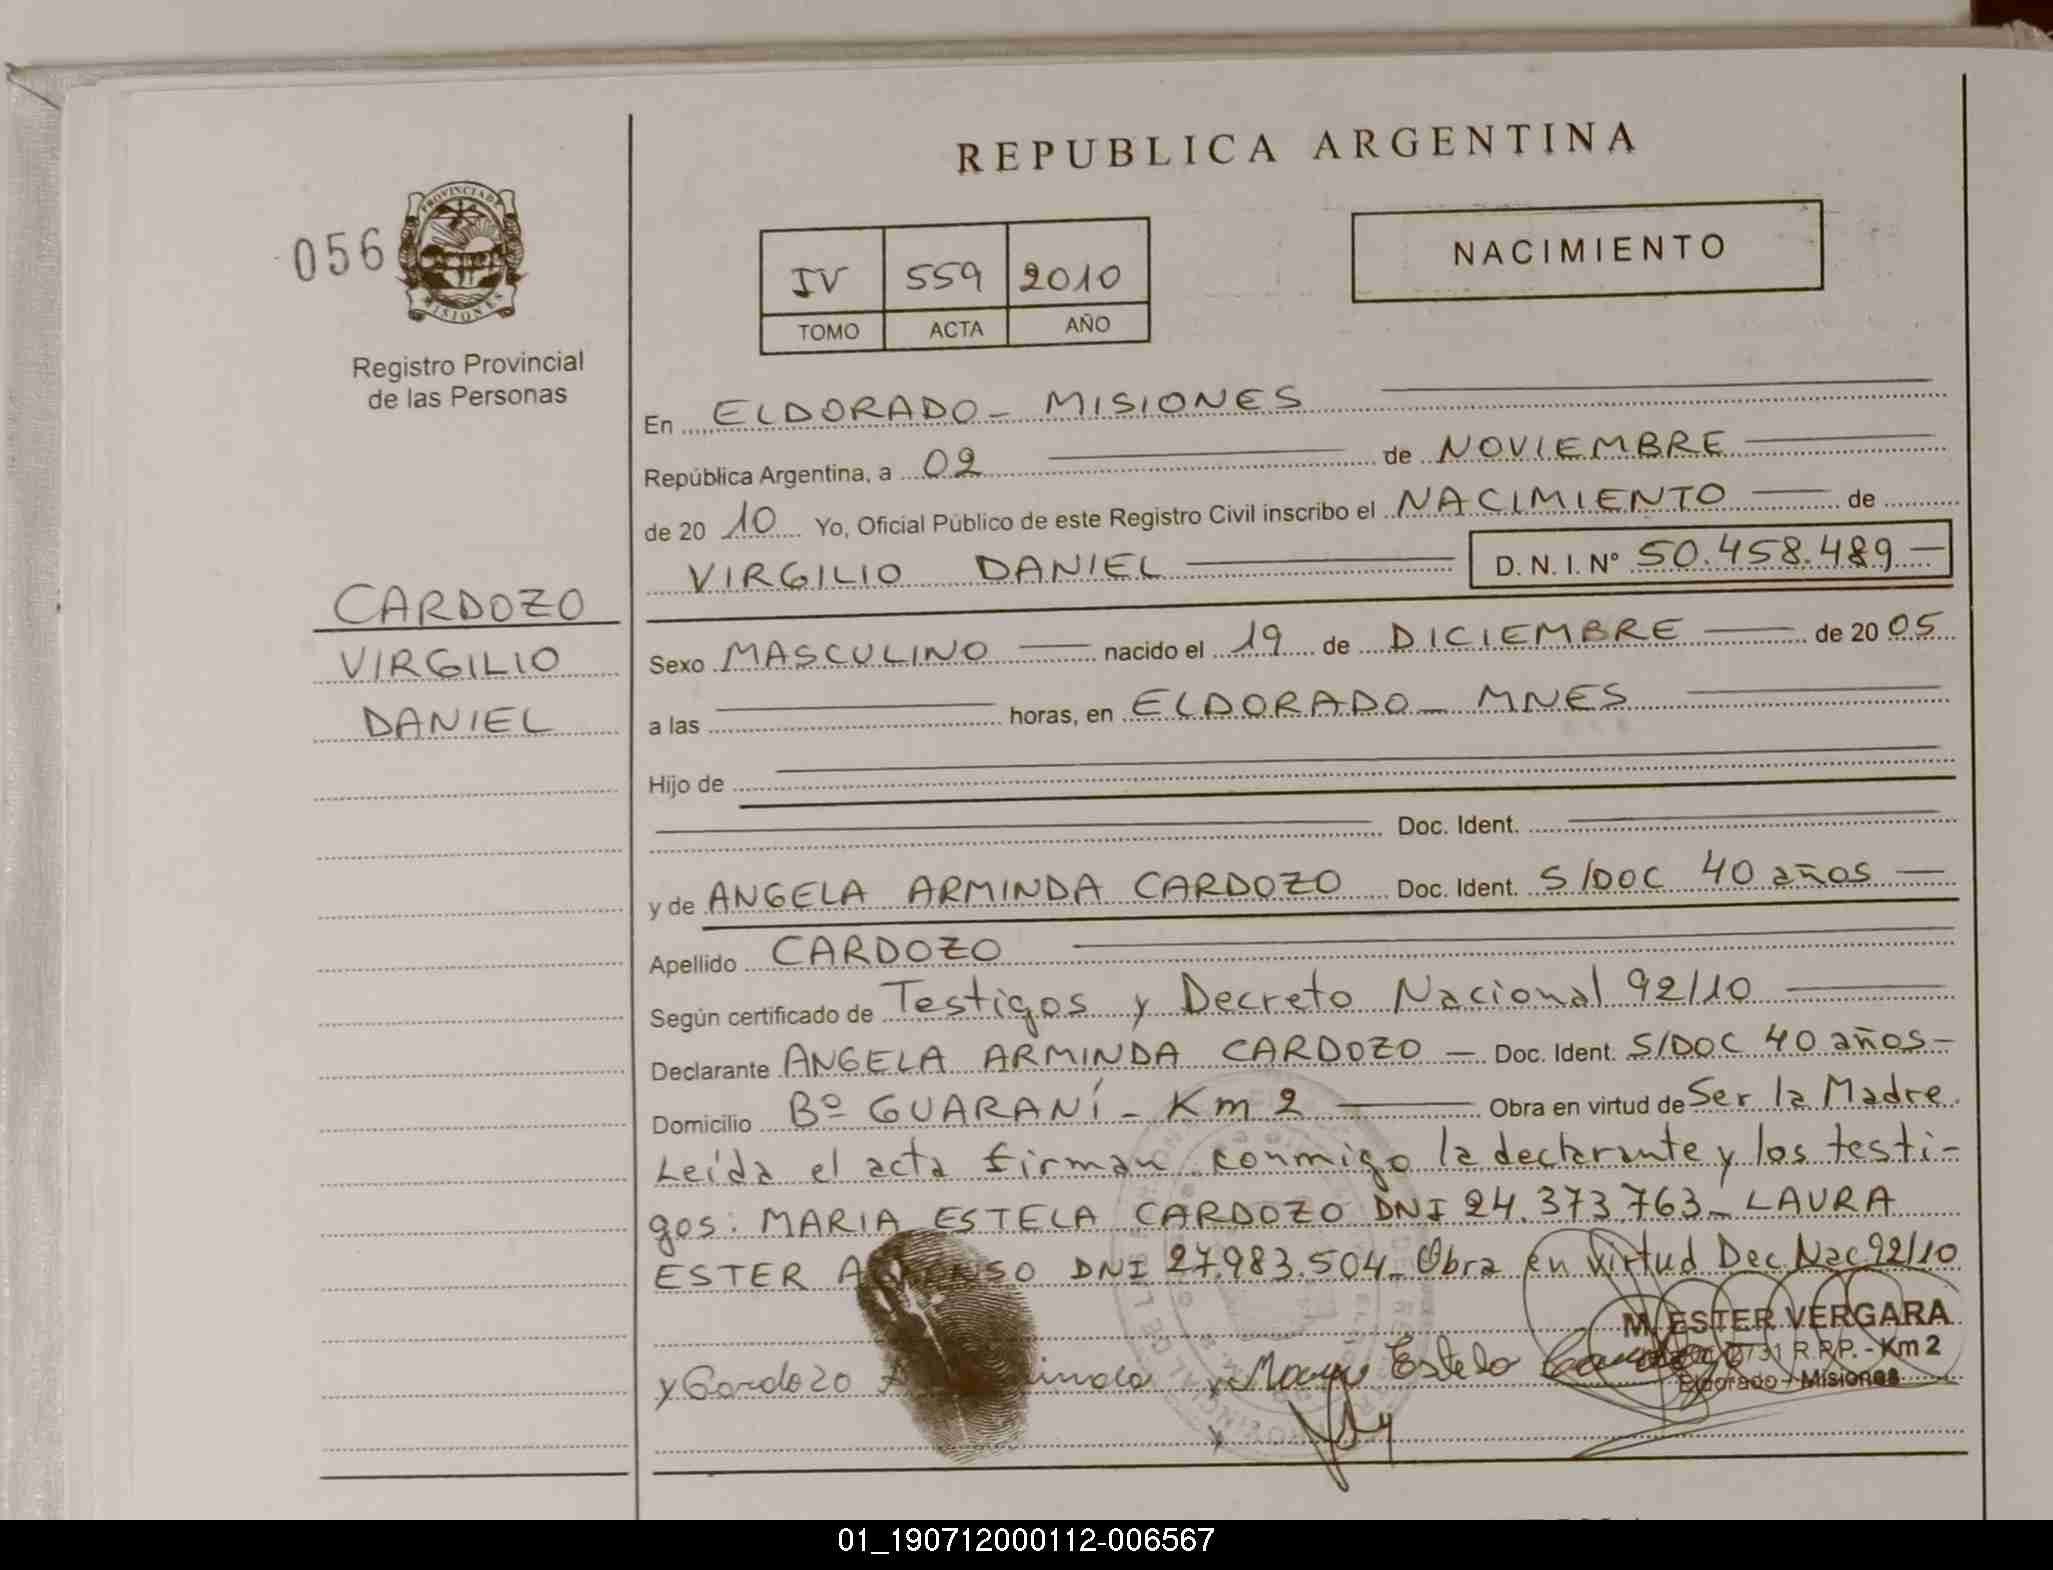 REPUBLICA ARGENTINA
056
PROVINCIA DE
MISIONES
Registro Provincial
de las Personas
IV 559 2010
TOMO ACTA AÑO
NACIMIENTO
CARDOZO
VIRGILIO
DANIEL
En ELDORADO - MISIONES
República Argentina, a 02 de NOVIEMBRE
de 20 10 Yo, Oficial Público de este Registro Civil inscribo el NACIMIENTO de
VIRGILIO DANIEL D. N. I. Nº 50.458.489
Sexo MASCULINO nacido el 19 de DICIEMBRE de 20 05
a las horas, en ELDORADO - MNES
Hijo de
Doc. Ident.
y de ANGELA ARMINDA CARDOZO Doc. Ident. S/DOC 40 años
Apellido CARDOZO
Según certificado de Testigos y Decreto Nacional 92/10
Declarante ANGELA ARMINDA CARDOZO - Doc. Ident. S/DOC 40 años -
Domicilio Bº GUARANÍ - Km 2 Obra en virtud de Ser la Madre.
Leída el acta firman conmigo la declarante y los testi-
gos: MARIA ESTELA CARDOZO DNI 24.373.763 - LAURA
ESTER DNI 27.983.504 - Obra en virtud Dec. Nac 92/10
M. ESTER VERGARA
R.P.P. - Km 2
Eldorado - Misiones
y Cardozo
Estela
01_190712000112-006567